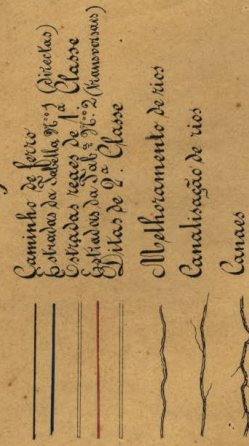 Caminho de ferro
Estradas da Tabella Nº 1 (directas)
Estradas reaes de 1ª Classe
Estradas da Tab.ª Nº 2 (transversais)
Ditas de 2ª Classe
Melhoramento de rios
Canalisação de rios
Canaes